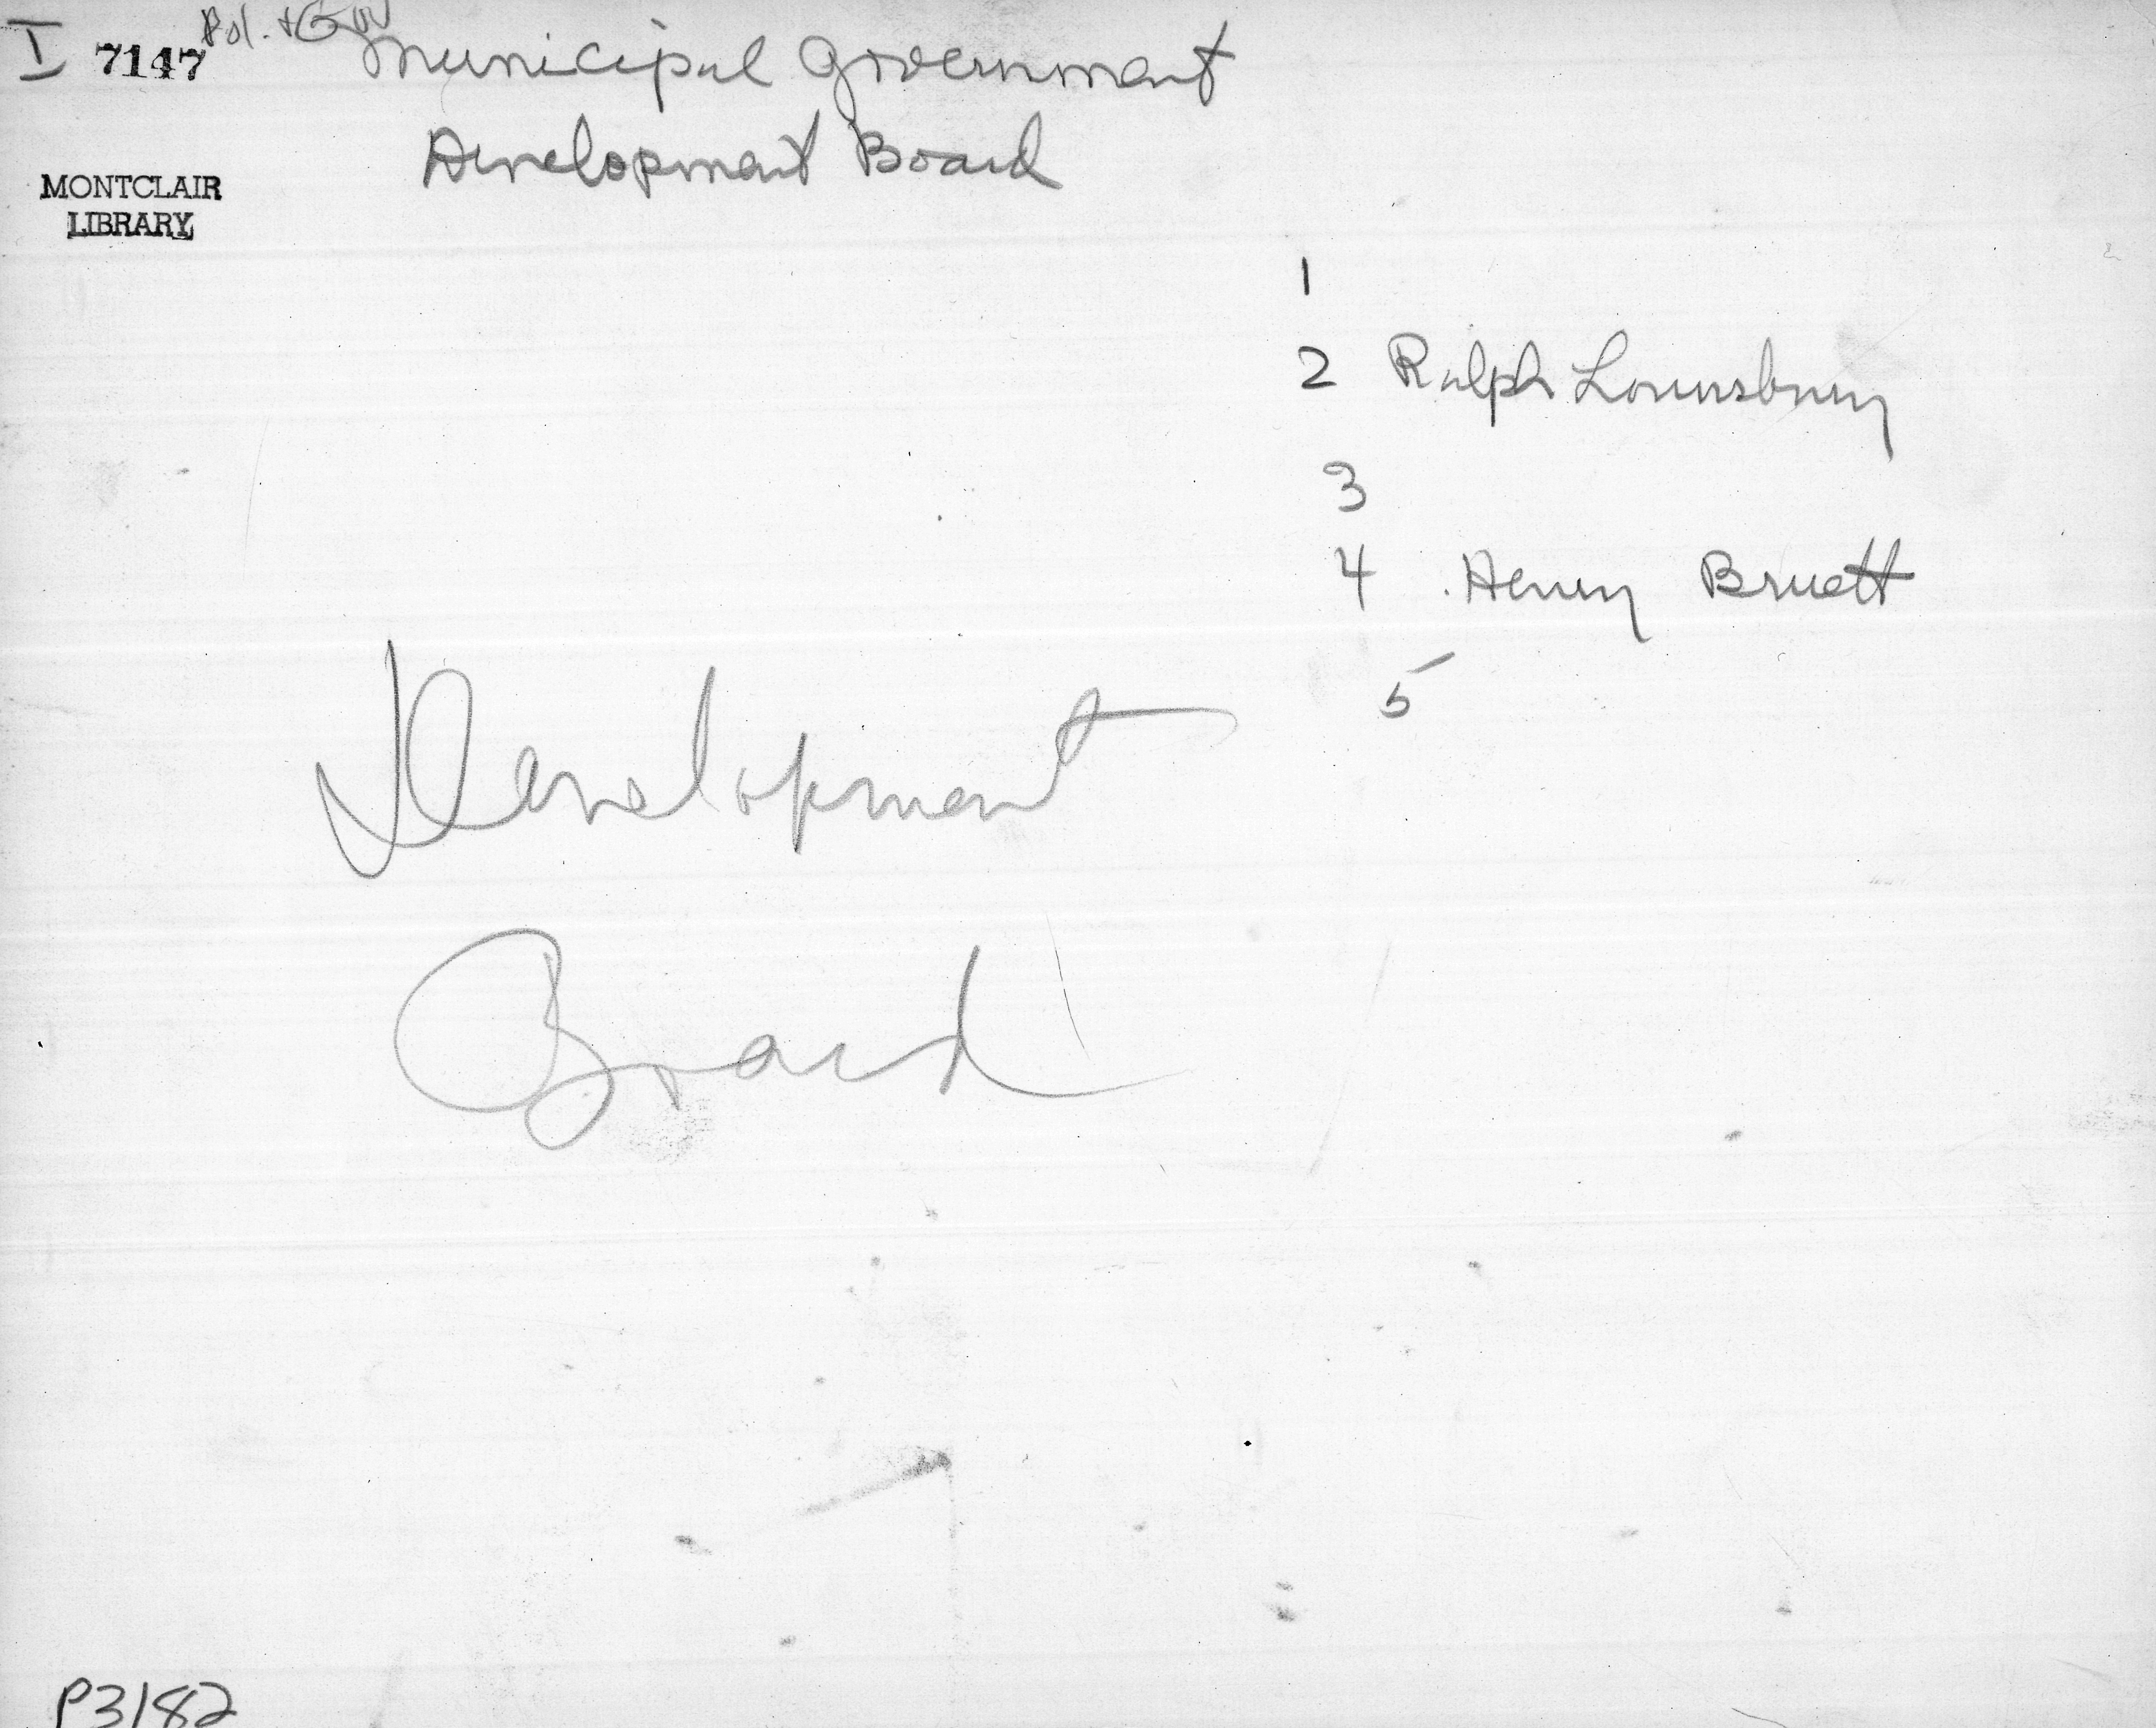 I 7147 Pol. + Gov
Municipal Government
Development Board
MONTCLAIR
LIBRARY
1
2 Ralph Lounsbury
3
4 Henry Bruett
5
Development
Board
P3182